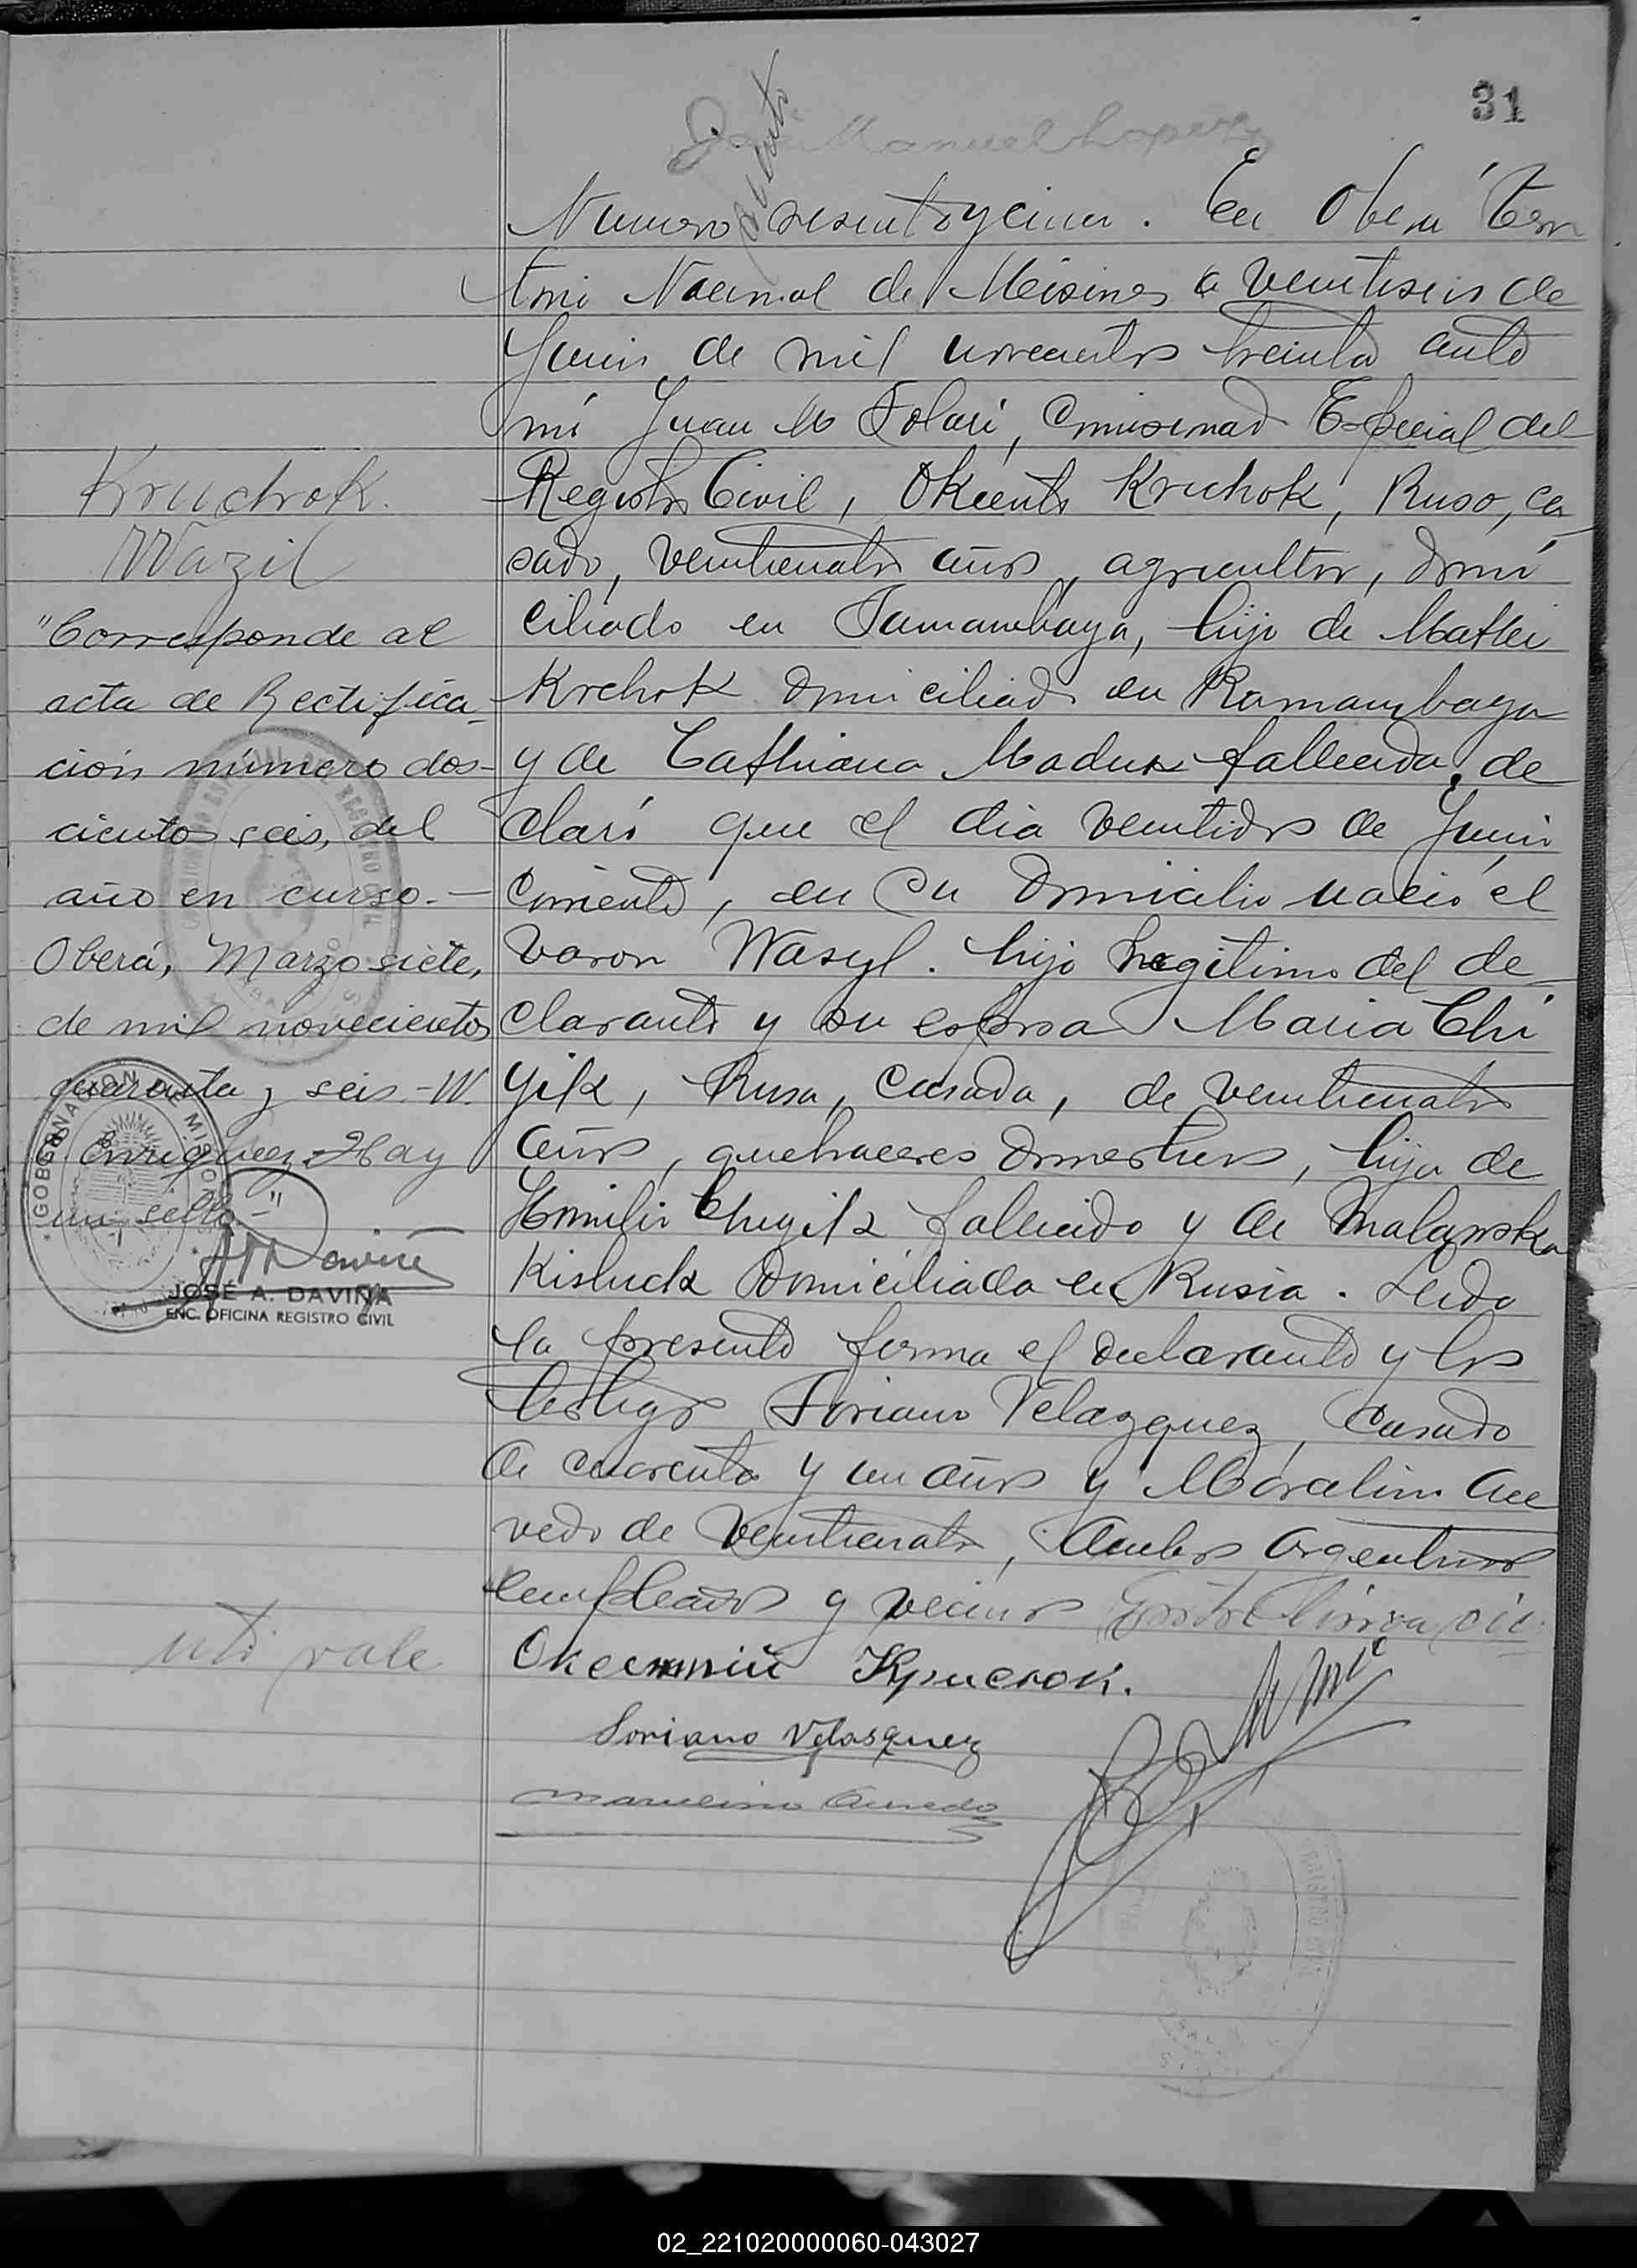 31
Manuel Lopez
Numero sesentaycinco. En Oberá Terri
torio Nacional de Misiones a veintiseis de
Junio de mil novecientos treinta ante
mi Juan M Solari, Comisionado Especial del
Registro Civil, Okcenti Kruchok, Ruso, ca
sado, veinticuatro años, agricultor, domi
ciliado en Samambaya, hijo de Mathei
Krchok domiciliado en Ramambaya
y de Cathiana Maduk fallecida, de
claró que el dia veintidos de Junio
corriente, en su domicilio nació el
varon Wasyl. hijo legitimo del de
clarante y su esposa Maria Chi
yik, Rusa, casada, de veinticuatro
años, quehaceres domesticos, hija de
Emilio Chuyik fallecido y de Malanska
Kisluck domiciliada en Rusia. Leida
la presente firma el declarante y los
testigos Soriano Velazquez, casado
de cuarenta y un años y Marcelino Ace
vedo de veinticuatro, ambos argentinos
empleados y vecinos Entre linea
Оксентий Кричок.
Soriano Velasquez
Marcelino Acevedo
Kruchok.
Wazil
"Corresponde al
acta de Rectifica-
ción número dos-
cientos seis, del
año en curso.-
Oberá, Marzo siete,
de mil novecientos
cuarenta y seis.-W.
Enriquez-Hay
un sello-"
GOBERNACION DE MISIONES
JOSÉ A. DAVIÑA
ENC. OFICINA REGISTRO CIVIL
vale
REGISTRO CIVIL
02_221020000060-043027